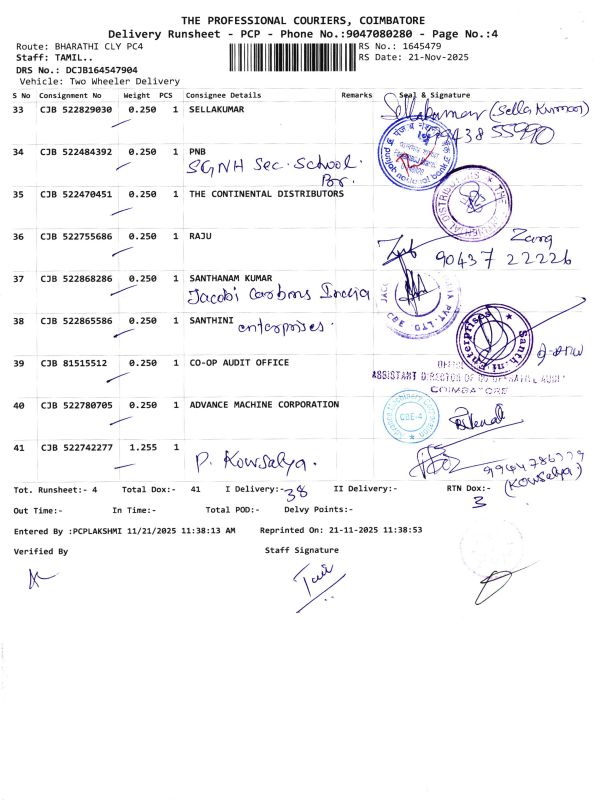 THE PROFESSIONAL COURIERS, COIMBATORE
Delivery Runsheet - PCP - Phone No.:9047080280 - Page No.:4
Route: BHARATHI CLY PC4 RS No.: 1645479
Staff: TAMIL.. RS Date: 21-Nov-2025
DRS No.: DCJB164547904
Vehicle: Two Wheeler Delivery
S No Consignment No Weight PCS Consignee Details Remarks Seal & Signature
33 CJB 522829030 0.250 1 SELLAKUMAR Sellakumar (Sella Kumar)
9438 55990
34 CJB 522484392 0.250 1 PNB
SGNH Sec. School. Br.
punjab national bank
35 CJB 522470451 0.250 1 THE CONTINENTAL DISTRIBUTORS
36 CJB 522755686 0.250 1 RAJU
90437 22226
37 CJB 522868286 0.250 1 SANTHANAM KUMAR
Jacobi Carbons India
PVT. LTD CBE
38 CJB 522865586 0.250 1 SANTHINI
enterprises.
Santhini Enterprises
39 CJB 81515512 0.250 1 CO-OP AUDIT OFFICE
ASSISTANT DIRECTOR OF CO-OPERATIVE AUDIT
COIMBATORE
40 CJB 522780705 0.250 1 ADVANCE MACHINE CORPORATION
CBE-4
41 CJB 522742277 1.255 1
P. Kowsalya.
(Kowsalya)
Tot. Runsheet:- 4 Total Dox:- 41 I Delivery:- 38 II Delivery:- RTN Dox:- 3
Out Time:- In Time:- Total POD:- Delvy Points:-
Entered By :PCPLAKSHMI 11/21/2025 11:38:13 AM Reprinted On: 21-11-2025 11:38:53
Verified By Staff Signature